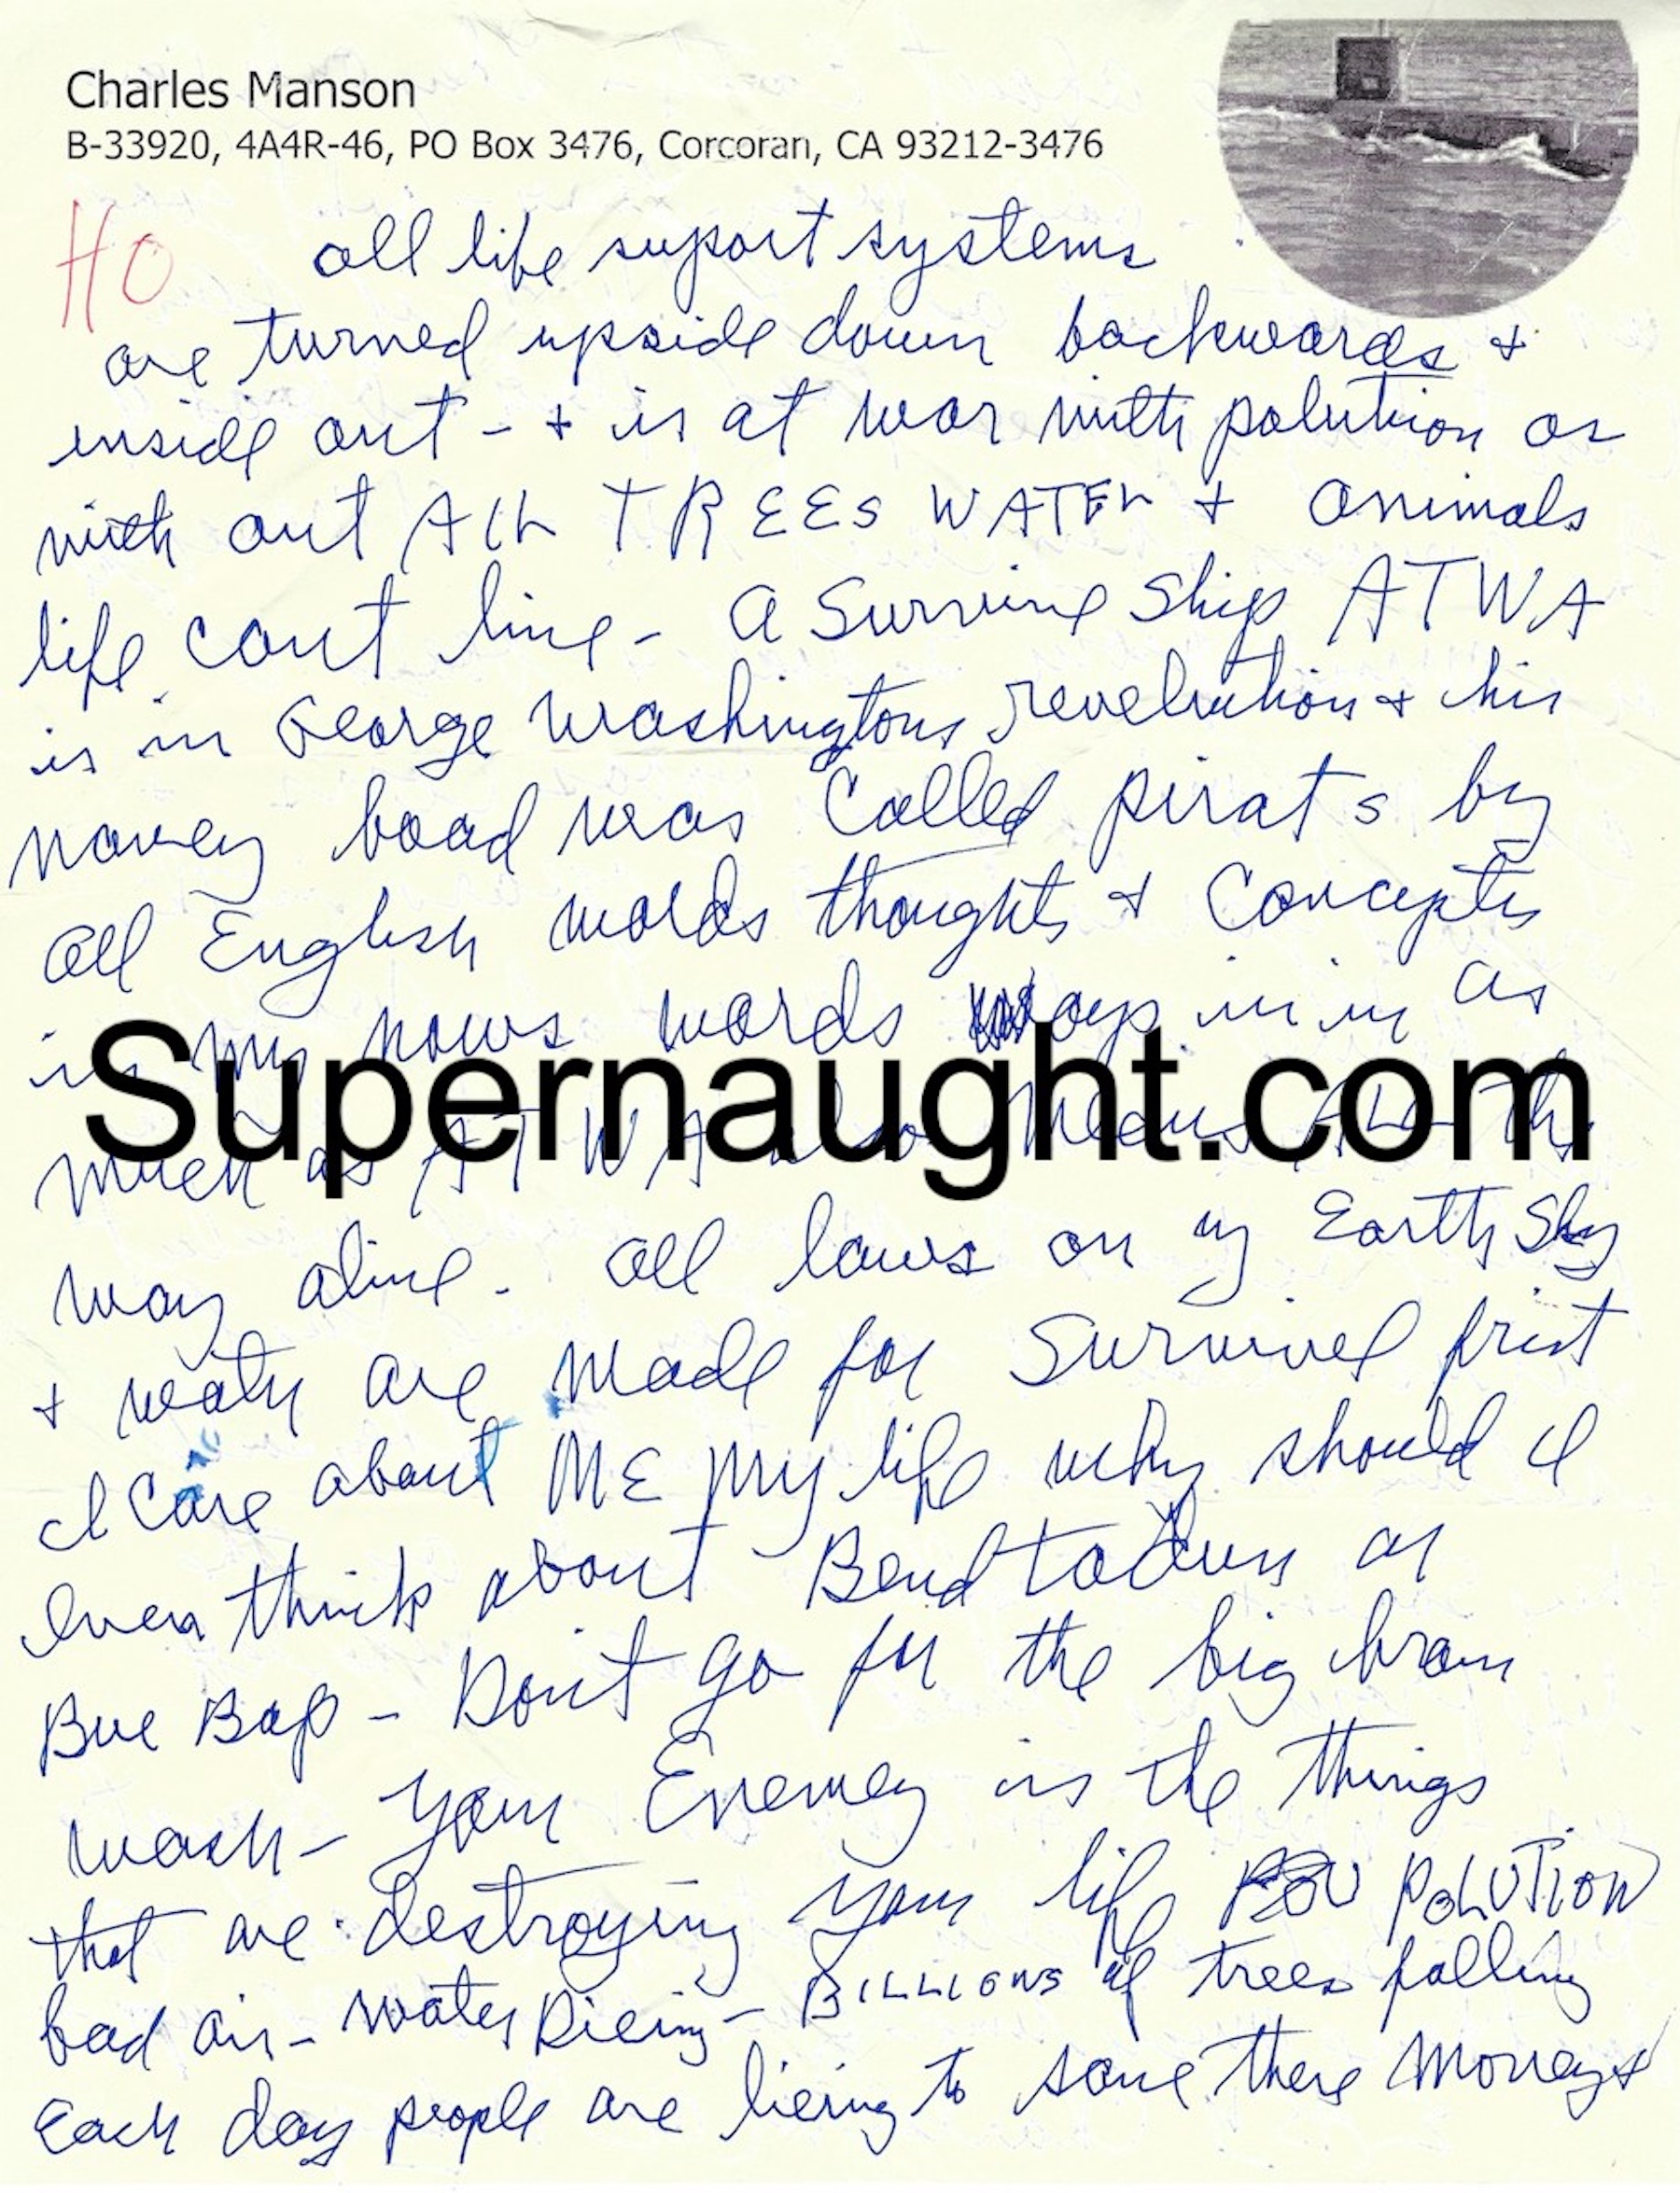 Charles Manson
B-33920, 4A4R-46, PO Box 3476, Corcoran, CA 93212-3476
HO all life suport systems
are turned upside down backwards +
inside out - + is at war with polution or
with out AIR TREES WATER + animals
life cant live - a Survive Ship ATWA
is in George Washingtons revelution + his
navey was Called pirats by
all English words thoughts + Concepts
is words in as
much as ATWA also means ALL the
way alive. all laws on Earth Sky
+ are made for Survivel frist
I Care about ME My life why should I
even think about or
- Don't go for the big brain
wash - your Enemey is the things
that are destroying your life POLUTION
bad air - water Dieing - BILLIONS of trees falling
Each day people are lieing to save there Money +
Supernaught.com